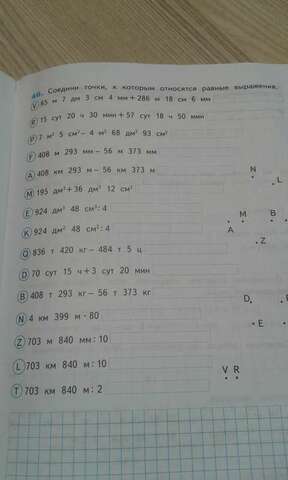 40. Соедини точки, к которым относятся равные выражения.
V 65 м 7 дм 3 см 4 мм + 286 м 18 см 6 мм
R 15 сут 20 ч 30 мин + 57 сут 18 ч 50 мин
P 7 м² 5 см² − 4 м² 68 дм² 93 см²
F 408 м 293 мм − 56 м 373 мм
A 408 км 293 м − 56 км 373 м
M 195 дм² + 36 дм² 12 см²
E 924 дм² 48 см² : 4
K 924 дм² 48 см² : 4
Q 836 т 420 кг − 484 т 5 ц
D 70 сут 15 ч + 3 сут 20 мин
B 408 т 293 кг − 56 т 373 кг
N 4 км 399 м · 80
Z 703 м 840 мм : 10
L 703 км 840 м : 10
T 703 км 840 м : 2
N
L
M B
A
Z
D
E
V R